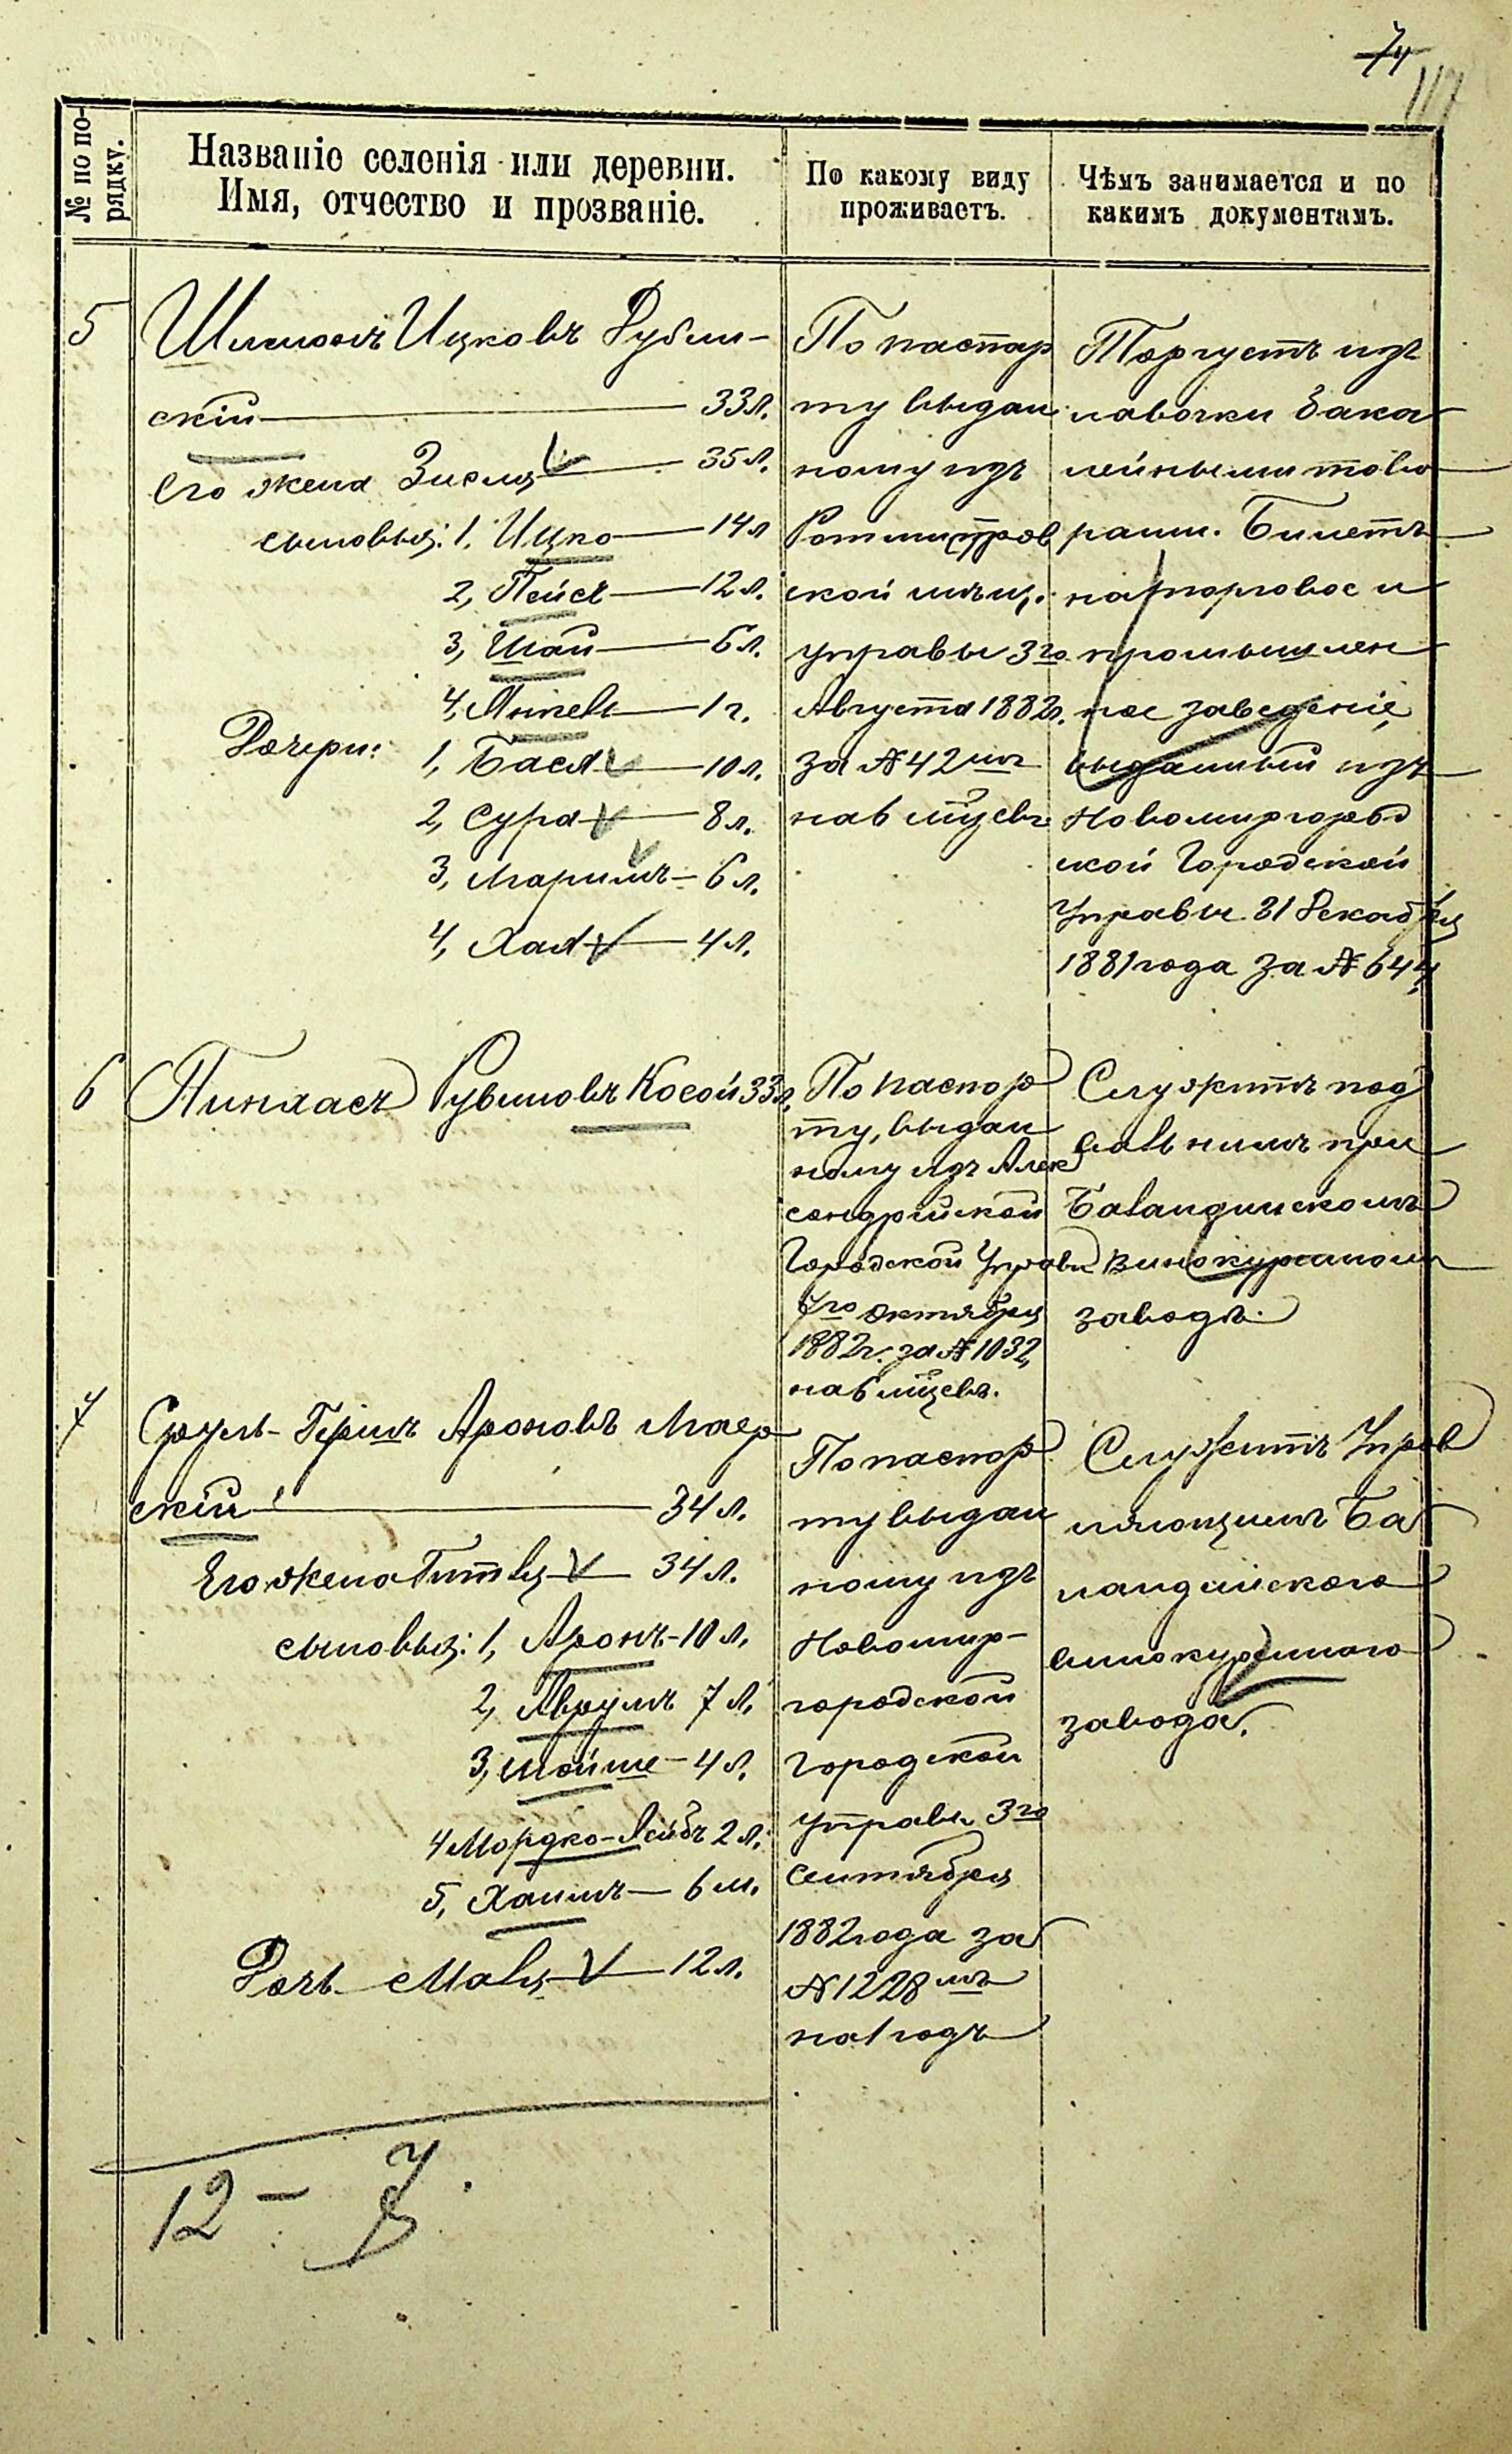 74
117
№ по по-
рядку.
Названіе селенія или деревни.
Имя, отчество и прозваніе.
По какому виду
проживаетъ.
Чѣмъ занимается и по
какимъ документамъ.
5
Шлиомъ Ицковъ Рублин-
скій — 33 л.
Его жена Зисля — 35 л.
сыновья: 1, Ицко — 14 л
2, Пейсъ — 12 л.
3, Шай — 6 л.
4, Янкель — 1 г.
Дочери: 1, Бася — 10 л.
2, Сура — 8 л.
3, Маримъ — 6 л.
4, Хая — 4 л.
По паспор
ту выдан
ному изъ
Ротмистров
ской мѣщ.
управы 3го
Августа 1882г.
за № 42мъ
на 6 мѣсцевъ
Торгуетъ изъ
лавочки бака
лейными това
рами. Билетъ
на торговое и
промышлен
ное заведеніе,
выданный изъ
Новомиргород
ской Городской
Управы 21 Декабря
1881 года за № 644,
6
Пинхасъ Рувиновъ Косой 33 л.
По паспор
ту, выдан
ному изъ Алек
сандрійской
Городской Управы
7го Октября
1882 г. за № 1032,
на 6 мѣсцевъ.
Служитъ под
вальнимъ при
Баландинскомъ
винокуренномъ
заводѣ.
7
Сруль-Гершъ Ароновъ Маер
скій — 34 л.
Его жена Гитля — 34 л.
сыновья: 1, Аронъ - 10 л.
2, Аврумъ 7 л.
3, Мойше - 4 л.
4 Мордко-Лейбъ 2 л.
5, Хаимъ — 6 м.
Дочь Маля — 12 л.
По паспор
ту выдан
ному изъ
Новомир-
городской
городской
управы 3го
Сентября
1882 года за
№ 1228мъ
на 1 годъ
Служитъ Управ
ляющимъ Ба
ландинского
винокуренного
завода.
12 - 7.